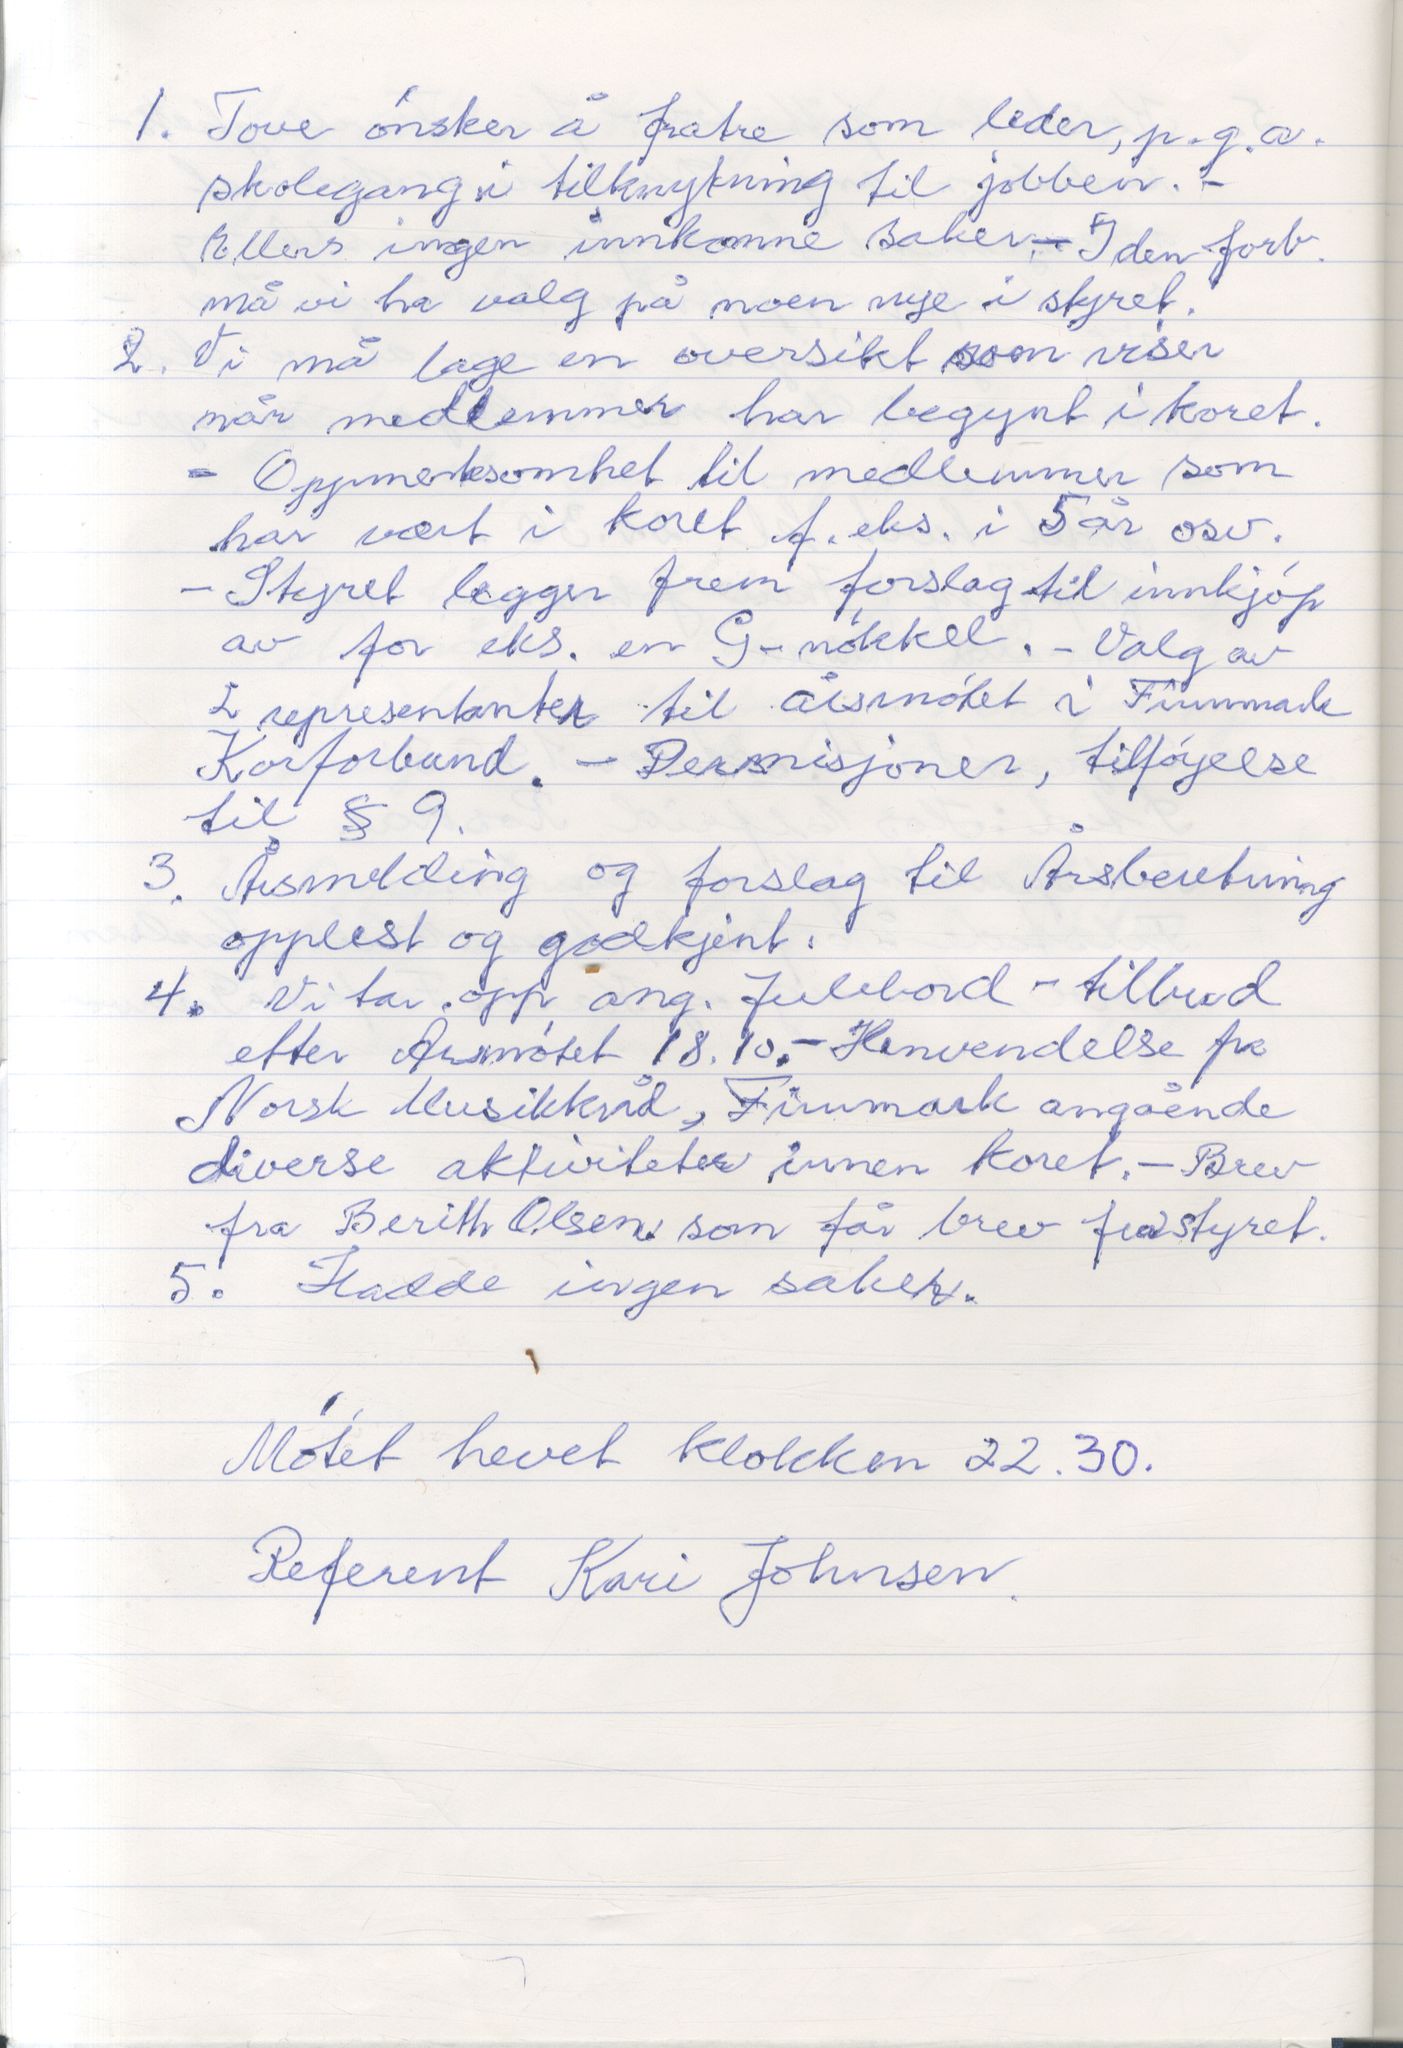 1. Tove ønsker å fratre som leder, p.g.a.
skolegang i tilknytning til jobben. -
Ellers ingen innkomne saker. - I den forb.
må vi ha valg på noen nye i styret.
2. Vi må lage en oversikt som viser
når medlemmer har begynt i koret.
- Oppmerksomhet til medlemmer som
har vært i koret f. eks. i 5 år osv.
- Styret legger frem forslag til innkjøp
av for eks. en G-nøkkel. - Valg av
2 representanter til årsmøtet i Finnmark
Korforbund. - Permisjoner, tilføyelse
til § 9.
3. Årsmelding og forslag til Årsberetning
opplest og godkjent.
4. Vi tar opp ang. Julebord - tilbud
etter Årsmøtet 18.10. - Henvendelse fra
Norsk Musikkråd, Finnmark angående
diverse aktiviteter innen koret. - Brev
fra Berith Olsen som får brev fra styret.
5. Hadde ingen saker.
Møtet hevet klokken 22.30.
Referent Kari Johnsen.